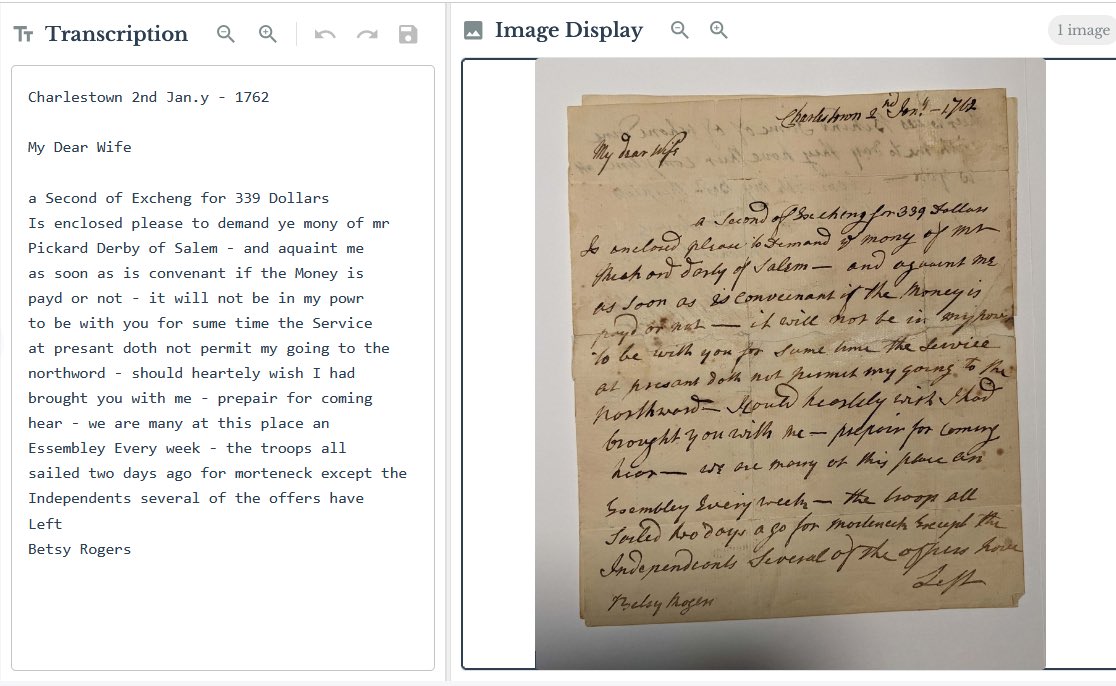 Transcription
Image Display
1 image
Charlestown 2nd Jan.y - 1762
My Dear Wife
a Second of Excheng for 339 Dollars
Is enclosed please to demand ye mony of mr
Pickard Derby of Salem - and aquaint me
as soon as is convenant if the Money is
payd or not - it will not be in my powr
to be with you for sume time the Service
at presant doth not permit my going to the
northword - should heartely wish I had
brought you with me - prepair for coming
hear - we are many at this place an
Essembley Every week - the troops all
sailed two days ago for morteneck except the
Independents several of the offers have
Left
Betsy Rogers
Charlestown 2nd Jan.y - 1762
My dear wife
a Second of Excheng for 339 Dollars
Is enclosed please to Demand ye mony of mr
darby of Salem - and aquaint me
as soon as is convenant if the Money is
payd or not - it will not be in my powr
to be with you for sume time the Service
at presant doth not permit my going to the
northward - should heartely wish I had
brought you with me - prepair for coming
hear - we are many at this place an
Essembley Every week - the troops all
Sailed two days ago for morteneck Except the
Independents Several of the offers have
Left
Betsy Rogers